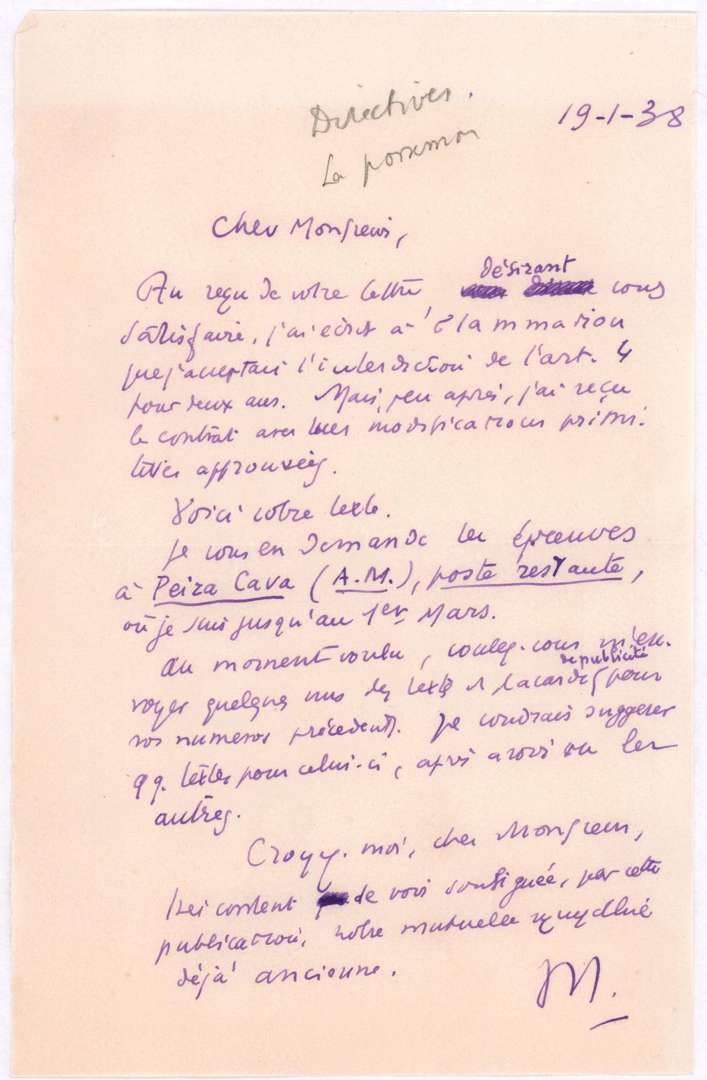 Directives.
La possession
19-1-38
Cher Monsieur,
Au reçu de votre lettre désirant vous
satisfaire, j'ai écrit à Flammarion
que j'acceptais l'interdiction de l'art. 4
pour deux ans. Mais, peu après, j'ai reçu
le contrat avec mes modifications primi-
tives approuvées.
Voici votre texte.
Je vous en demande les épreuves
à Peira Cava (A.M.), poste restante,
où je suis jusqu'au 1er Mars.
Au moment voulu, voulez-vous m'en-
voyer quelques uns des textes de publicité pour
vos numéros précédents. Je voudrais suggérer
qq. textes pour celui-ci, après avoir vu les
autres.
Croyez-moi, cher Monsieur,
très content de voir soulignée, par cette
publication, notre mutuelle sympathie
déjà ancienne.
M.